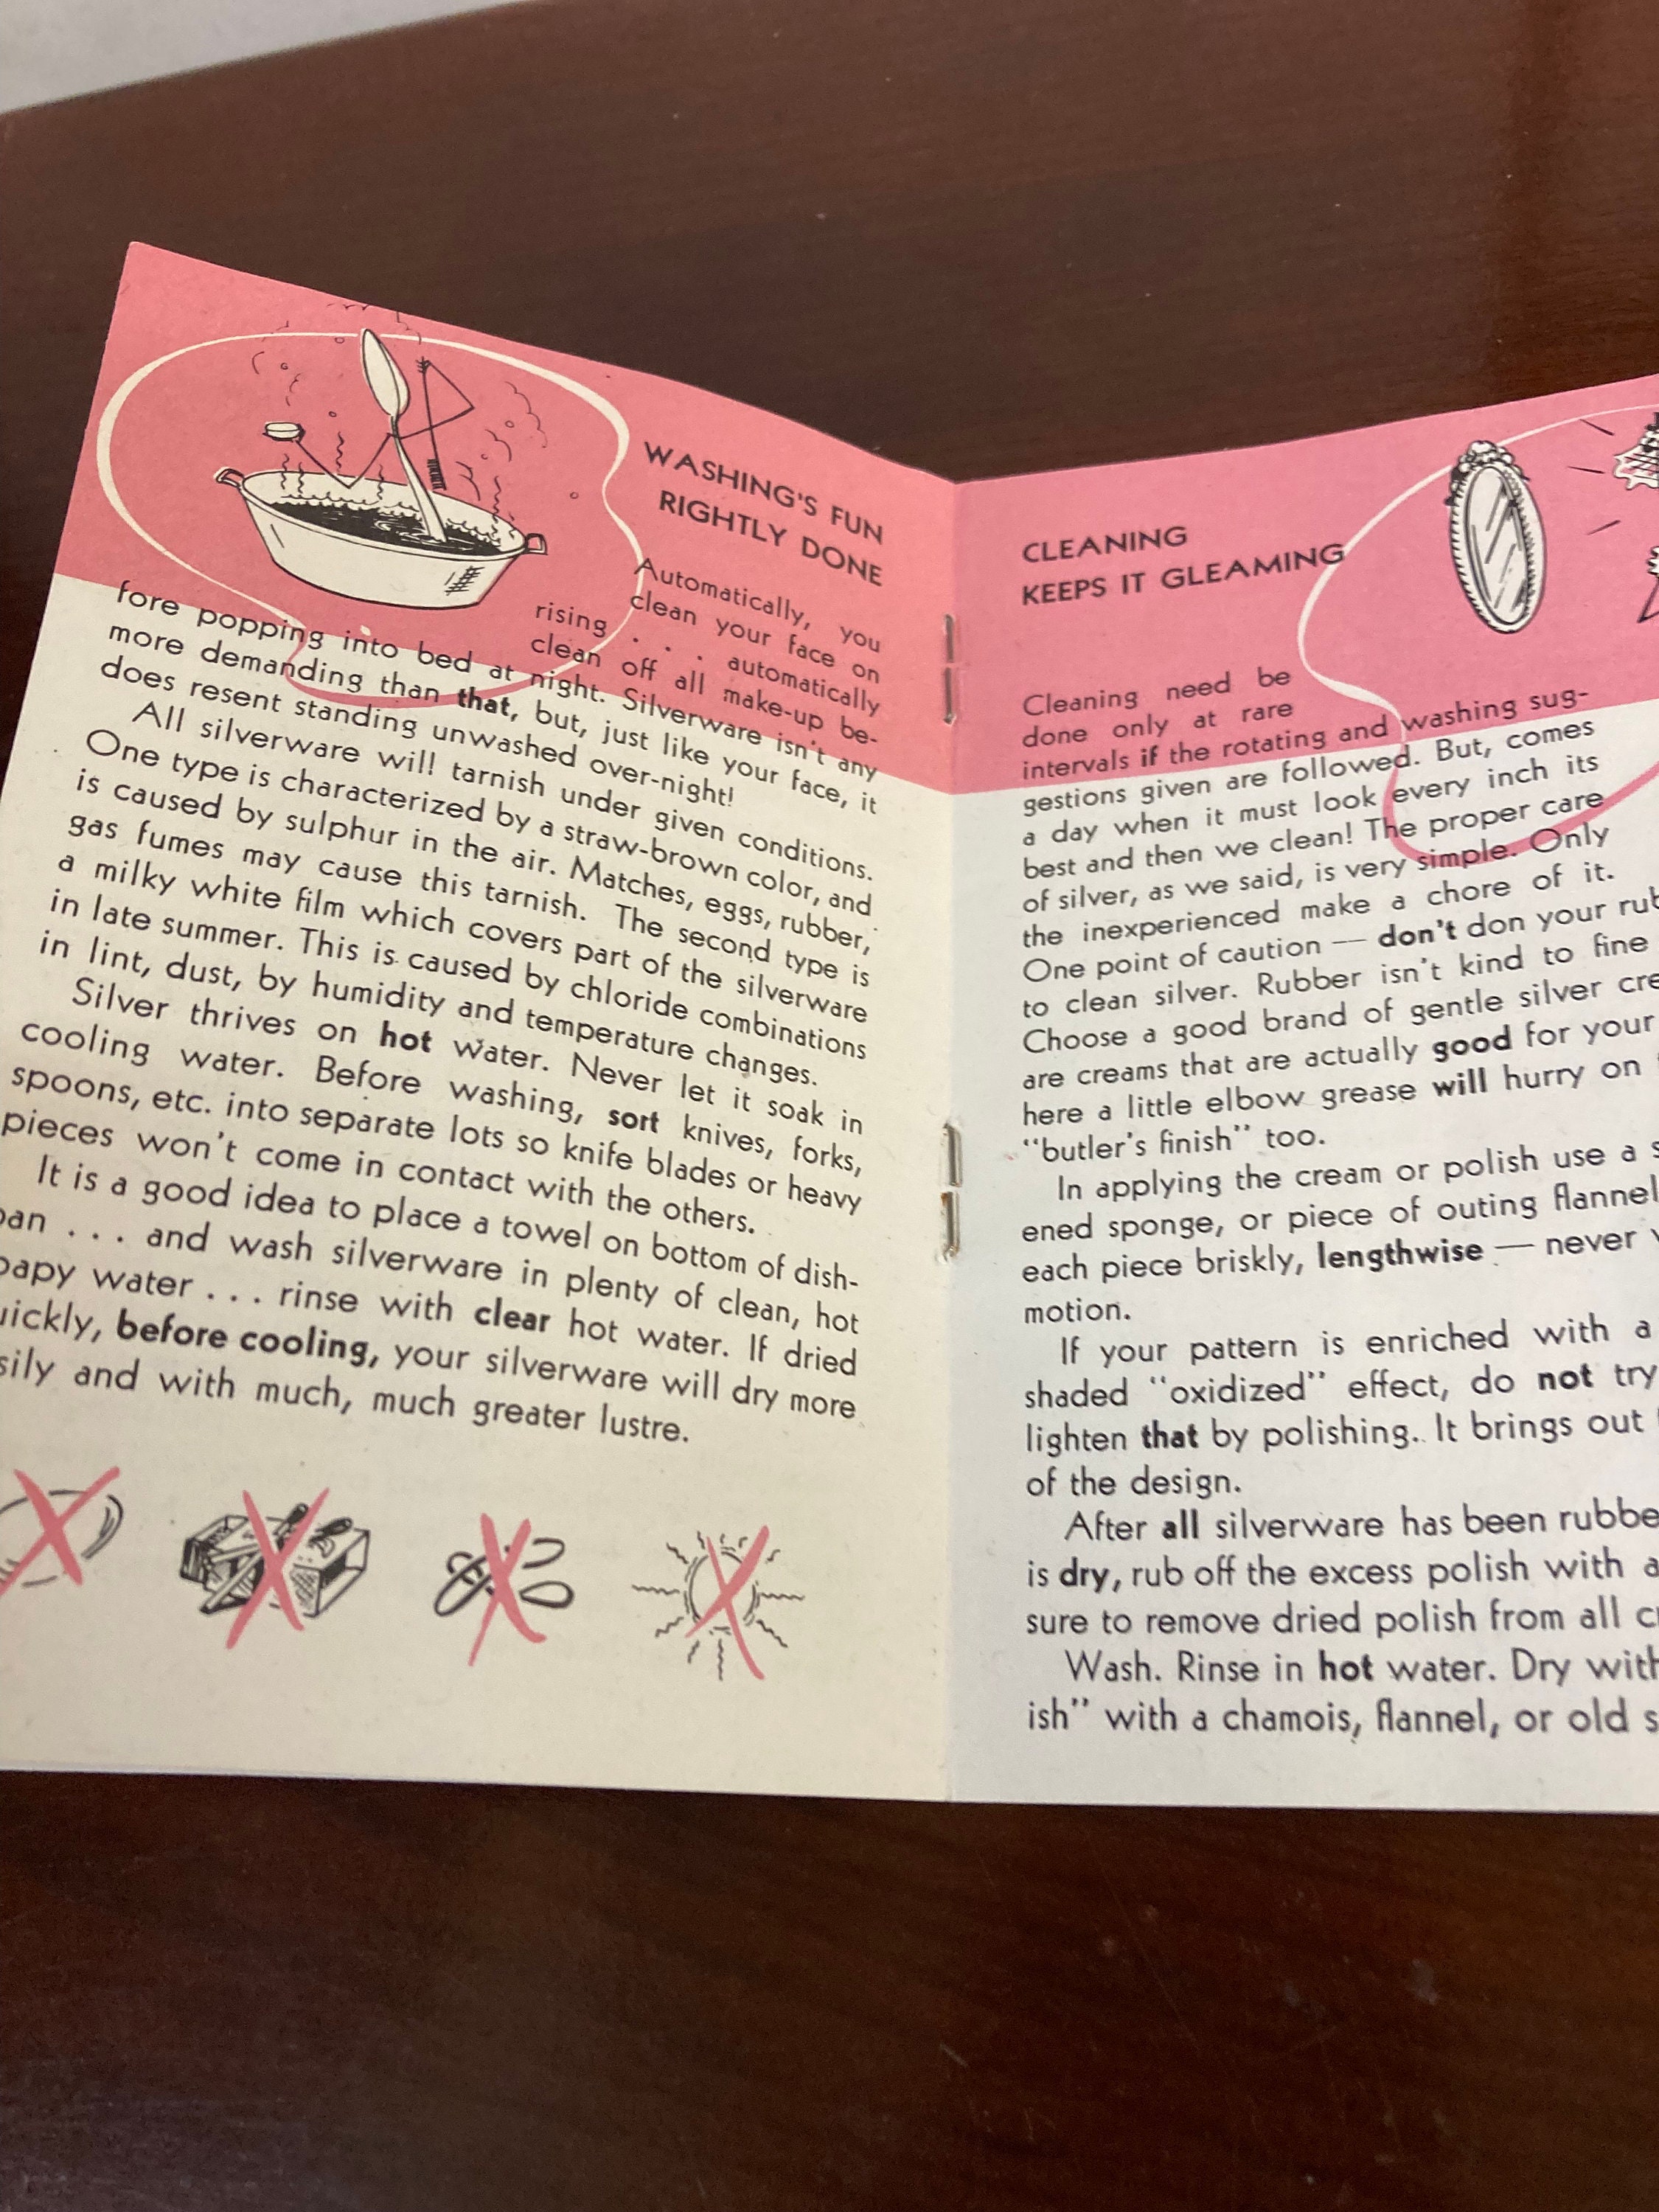 WASHING'S FUN
RIGHTLY DONE
Automatically, you
clean your face on
rising . . . automatically
clean off all make-up be-
fore popping into bed at night. Silverware isn't any
more demanding than that, but, just like your face, it
does resent standing unwashed over-night!
All silverware will tarnish under given conditions.
One type is characterized by a straw-brown color, and
is caused by sulphur in the air. Matches, eggs, rubber,
gas fumes may cause this tarnish. The second type is
a milky white film which covers part of the silverware
in late summer. This is caused by chloride combinations
in lint, dust, by humidity and temperature changes.
Silver thrives on hot water. Never let it soak in
cooling water. Before washing, sort knives, forks,
spoons, etc. into separate lots so knife blades or heavy
pieces won't come in contact with the others.
It is a good idea to place a towel on bottom of dish-
pan . . . and wash silverware in plenty of clean, hot
oapy water . . . rinse with clear hot water. If dried
uickly, before cooling, your silverware will dry more
sily and with much, much greater lustre.
CLEANING
KEEPS IT GLEAMING
Cleaning need be
done only at rare
intervals if the rotating and washing sug-
gestions given are followed. But, comes
a day when it must look every inch its
best and then we clean! The proper care
of silver, as we said, is very simple. Only
the inexperienced make a chore of it.
One point of caution — don't don your rub
to clean silver. Rubber isn't kind to fine
Choose a good brand of gentle silver cre
are creams that are actually good for your
here a little elbow grease will hurry on
"butler's finish" too.
In applying the cream or polish use a s
ened sponge, or piece of outing flannel
each piece briskly, lengthwise — never
motion.
If your pattern is enriched with a
shaded "oxidized" effect, do not try
lighten that by polishing. It brings out
of the design.
After all silverware has been rubbe
is dry, rub off the excess polish with a
sure to remove dried polish from all c
Wash. Rinse in hot water. Dry with
ish" with a chamois, flannel, or old s